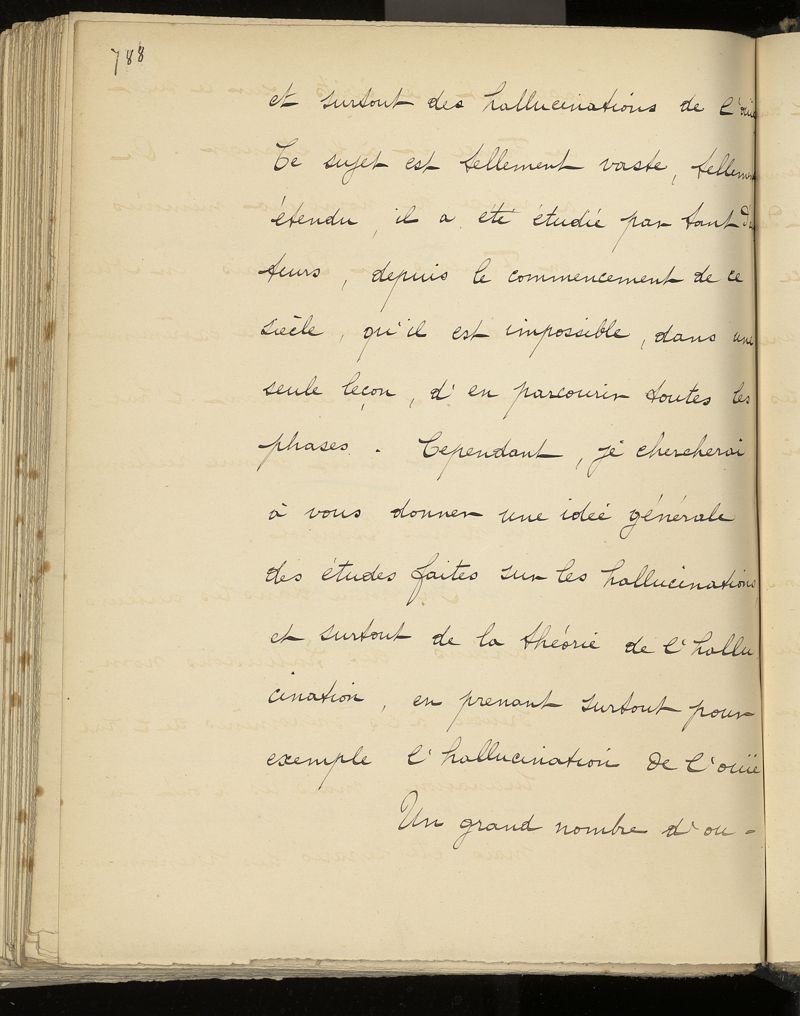 788
et surtout des hallucinations de l'ouïe
Ce sujet est tellement vaste, tellement
étendu, il a été étudié par tant d'au
teurs, depuis le commencement de ce
siècle, qu'il est impossible, dans une
seule leçon, d'en parcourir toutes les
phases. Cependant, je chercherai
à vous donner une idée générale
des études faites sur les hallucinations,
et surtout de la théorie de l'hallu
cination, en prenant surtout pour
exemple l'hallucination de l'ouïe
Un grand nombre d'au-